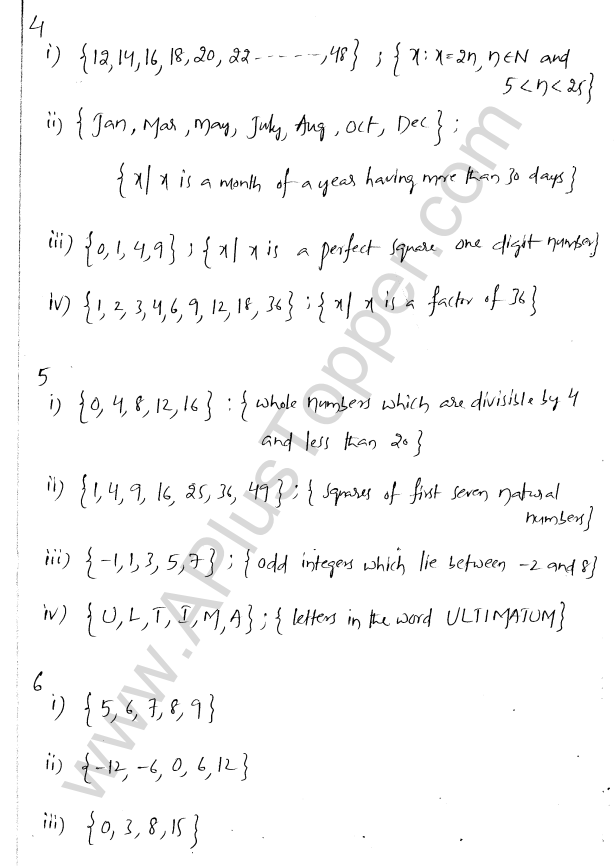 4
i) {12, 14, 16, 18, 20, 22 -------, 48} ; { x : x = 2n, n ∈ N and
5 < n < 25}
ii) { Jan, Mar, May, July, Aug, Oct, Dec } ;
{ x / x is a month of a year having more than 30 days }
iii) {0, 1, 4, 9} ; { x / x is a perfect square one digit number}
iv) {1, 2, 3, 4, 6, 9, 12, 18, 36} ; { x / x is a factor of 36 }
5
i) {0, 4, 8, 12, 16} : { whole numbers which are divisible by 4
and less than 20 }
ii) {1, 4, 9, 16, 25, 36, 49} ; { squares of first seven natural
numbers}
iii) {-1, 1, 3, 5, 7} ; { odd integers which lie between -2 and 8}
iv) { U, L, T, I, M, A} ; { letters in the word ULTIMATUM}
6
i) { 5, 6, 7, 8, 9 }
ii) {-12, -6, 0, 6, 12 }
iii) {0, 3, 8, 15 }
www.APlusTopper.com